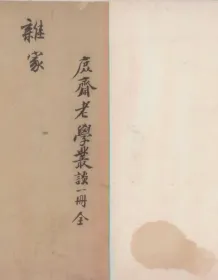 雜家
庶齋老學叢談一冊全